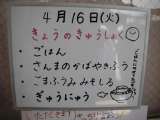 4月16日(火)
きょうのきゅうしょく
・ごはん
・さんまのかばやきふう
・ごまふうみみそしる
・ぎゅうにゅう